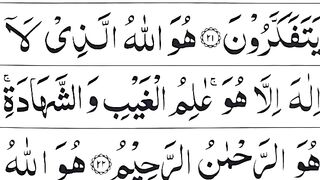 يَتَفَكَّرُوْنَ ۝٢١ هُوَ اللّٰهُ الَّذِىْ لَاۤ
اِلٰهَ اِلَّا هُوَ ۚ عٰلِمُ الْغَيْبِ وَالشَّهَادَةِ ۚ
هُوَ الرَّحْمٰنُ الرَّحِيْمُ ۝٢٢ هُوَ اللّٰهُ